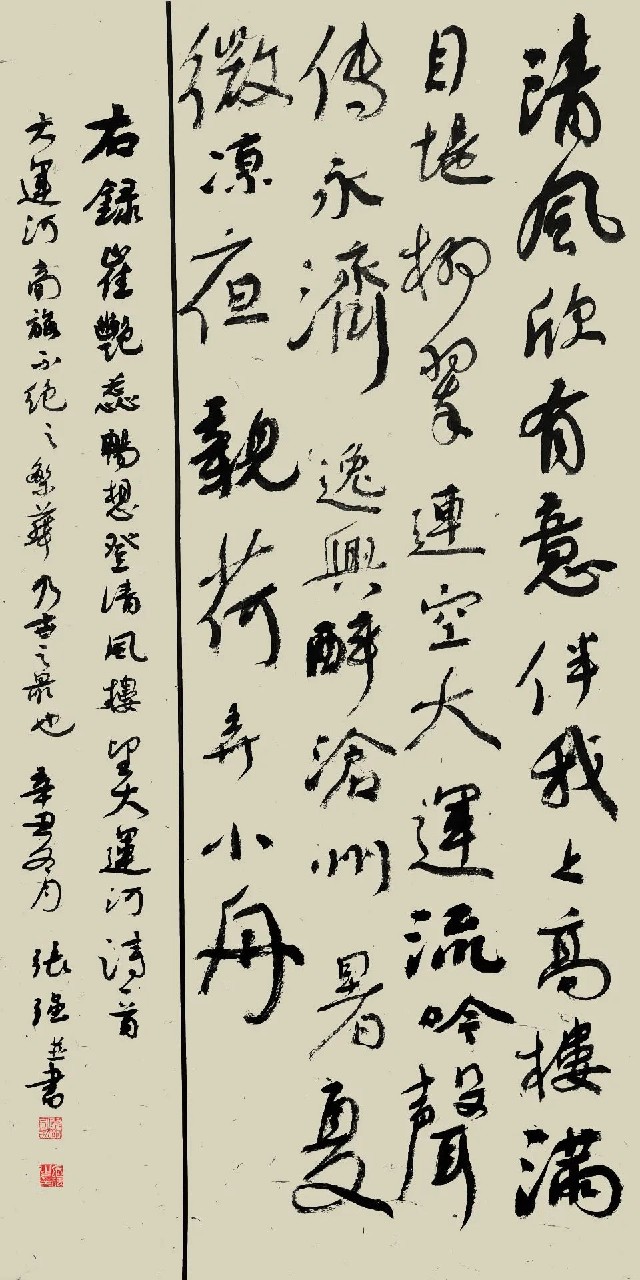 清風欣有意伴我上高樓滿
目堤柳翠連空大運流吟聲
傳永濟逸興醉滄州暑夏
微涼夜親荷弄小舟
右録崔艷蕊暢想登清風樓望大運河詩一首
大運河商旅不絶之繁華乃古之最也 辛丑冬月 張强並書